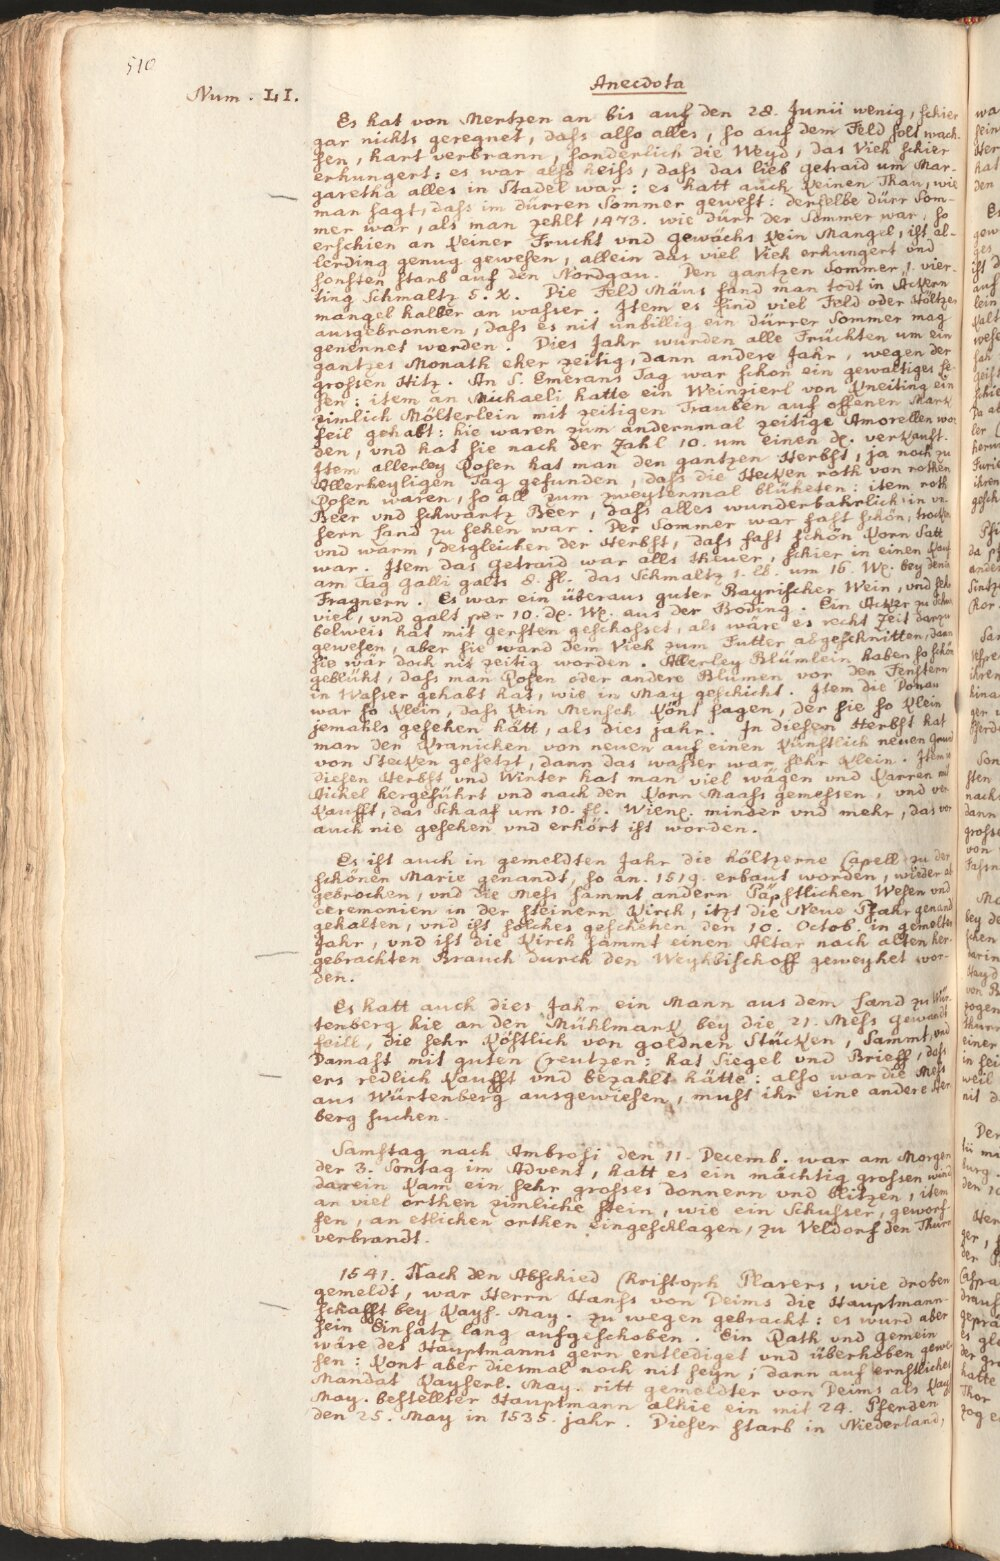 510
Num. LI.
Anecdota
Es hat von Mertzen an bis auf den 28. Junii wenig, schier
gar nichts geregnet, dass also alles, so auf dem Feld solt wach-
sen, hart verbrann, sonderlich die Weyd, das Vieh schier
erhungert: es war also heiss, dass das lieb getraid um Mar-
garetha alles in Stadel war: es hatt auch keinen Thau, wie
man sagt, dass im dürren Sommer gewest: derselbe dürr Som-
mer war, als man zehlt 1473. wie dürr der Sommer war, so
erschien an keiner Frucht vnd gewächs kein Mangel, ist al-
lerding genug gewesen, allein das viel Vieh erhungert vnd
sonsten starb auf den Nordgau. Den gantzen Sommer 1. vier-
ting Schmaltz 5. X. Die Feld Mäus fand man todt in Ackern
mangel halber an wasser. Item es sind viel Feld oder Höltzer
ausgebronnen, dass es nit unbillig ein dürrer Sommer mag
genennet werden. Dies Jahr wurden alle Früchten um ein
gantzes Monath eher zeitig, dann andere Jahr, wegen der
grossen Hitz. An S. Emerans Tag war schon ein gewaltiges le-
sen: item an Michaeli hatte ein Weinzierl von Kneiting ein
zimlich Mölterlein mit zeitigen Trauben auf offenen Markt
feil gehabt: hie waren zum andernmal zeitige Amorellen wor-
den, vnd hat sie nach der Zahl 10. um einen dℓ. verkauft.
Item allerley Rosen hat man den gantzen Herbst, ja noch zu
Allerheyligen Tag gefunden, dass die Hecken roth von rothen
Rosen waren, so all zum zweytenmal blüheten: item roth
Beer vnd schwartz Beer, dass alles wunderbahrlich in un-
sern Land zu sehen war. Der Sommer war fast schön, trocken
vnd warm, desgleichen der Herbst, dass fast schön Korn Satt
war. Item das getraid war alls theuer, schier in einen Kauf
am Tag Galli galts 8. fl. das Schmaltz 1. lb. um 16. Wℓ. bey denen
Fragnern. Es war ein überaus guter Bayrischer Wein, vnd sehr
viel, vnd galt per 10. dℓ. Wℓ. aus der Boding. Ein Acker zu
belweis hat mit gersten geschosset, als wäre es recht Zeit darzu
gewesen, aber sie ward dem Vieh zum Futter abgeschnitten, dann
sie wär doch nit zeitig worden. Allerley Blümlein haben so schön
geblüht, dass man Rosen oder andere Blumen vor den Fenstern
in Wasser gehabt hat, wie in May geschicht. Item die Donau
war so klein, dass kein Mensch könt sagen, der sie so klein
jemahls gesehen hätt, als dies jahr. In diesen Herbst hat
man den Kranichen von neuen auf einen künstlich neuen Grund
von Stecken gesetzt, dann das wasser war sehr klein. Item in
diesen Herbst vnd Winter hat man viel wägen vnd Karren mit
Aichel hergeführt vnd nach den Korn Maass gemessen, vnd ver-
kaufft, das Schaaf um 10. fl. Wienℓ. minder vnd mehr, das vor
auch nie gesehen vnd erhört ist worden.
Es ist auch in gemeldten Jahr die höltzerne Capell zu der
schönen Marie genandt, so an. 1519. erbaut worden, wieder ab
gebrochen, vnd die Mess sammt andern Päpstlichen Wesen vnd
ceremonien in der steinern Kirch, itzt die Neue Pfahr genand
gehalten, vnd ist solches geschehen den 10. Octob. in gemelten
Jahr, vnd ist die Kirch sammt einen Altar nach alten her-
gebrachten Brauch durch den Weyhbischoff geweyhet wor-
den.
Es hatt auch dies Jahr ein Mann aus dem Land zu Wür-
tenberg hie an den Mühlmark bey die 21. Mess gewandt
feill, die sehr köstlich von goldnen Stücken, Sammt, vnd
Damast mit guten Creutzen: hat Siegel vnd Brieff, dass
ers redlich kaufft vnd bezahlt hätte: also war die Mess
aus Würtenberg ausgewiesen, must ihr eine andere Her-
berg suchen.
Samstag nach Ambrosi den 11. Decemb. war am Morgen
der 3. Sontag im Advent, hatt es ein mächtig grossen wind
darein kam ein sehr grosses donnern vnd blitzen, item
an viel orthen zimliche stein, wie ein Schusser, geworf-
fen, an etlichen orthen eingeschlagen, zu Veldorf den Thurn
verbrandt.
1541. Nach den Abschied Christoph Plarers, wie droben
gemeldt, war Herrn Hanss von Deims die Hauptmann-
schafft bey Kays. May. zu wegen gebracht: es wurd aber
sein Einsatz lang aufgeschoben. Ein Rath vnd gemein
wäre des Hauptmanns gern entlediget vnd überhoben gewe-
sen: kont aber diesmal noch nit seyn, dann auf ernstliches
Mandat Kayserl. May. ritt gemeldter von Deims als Kay.
May. bestellter Hauptmann alhie ein mit 24. Pferden
den 25. May in 1535. jahr. Dieser starb in Niederland,